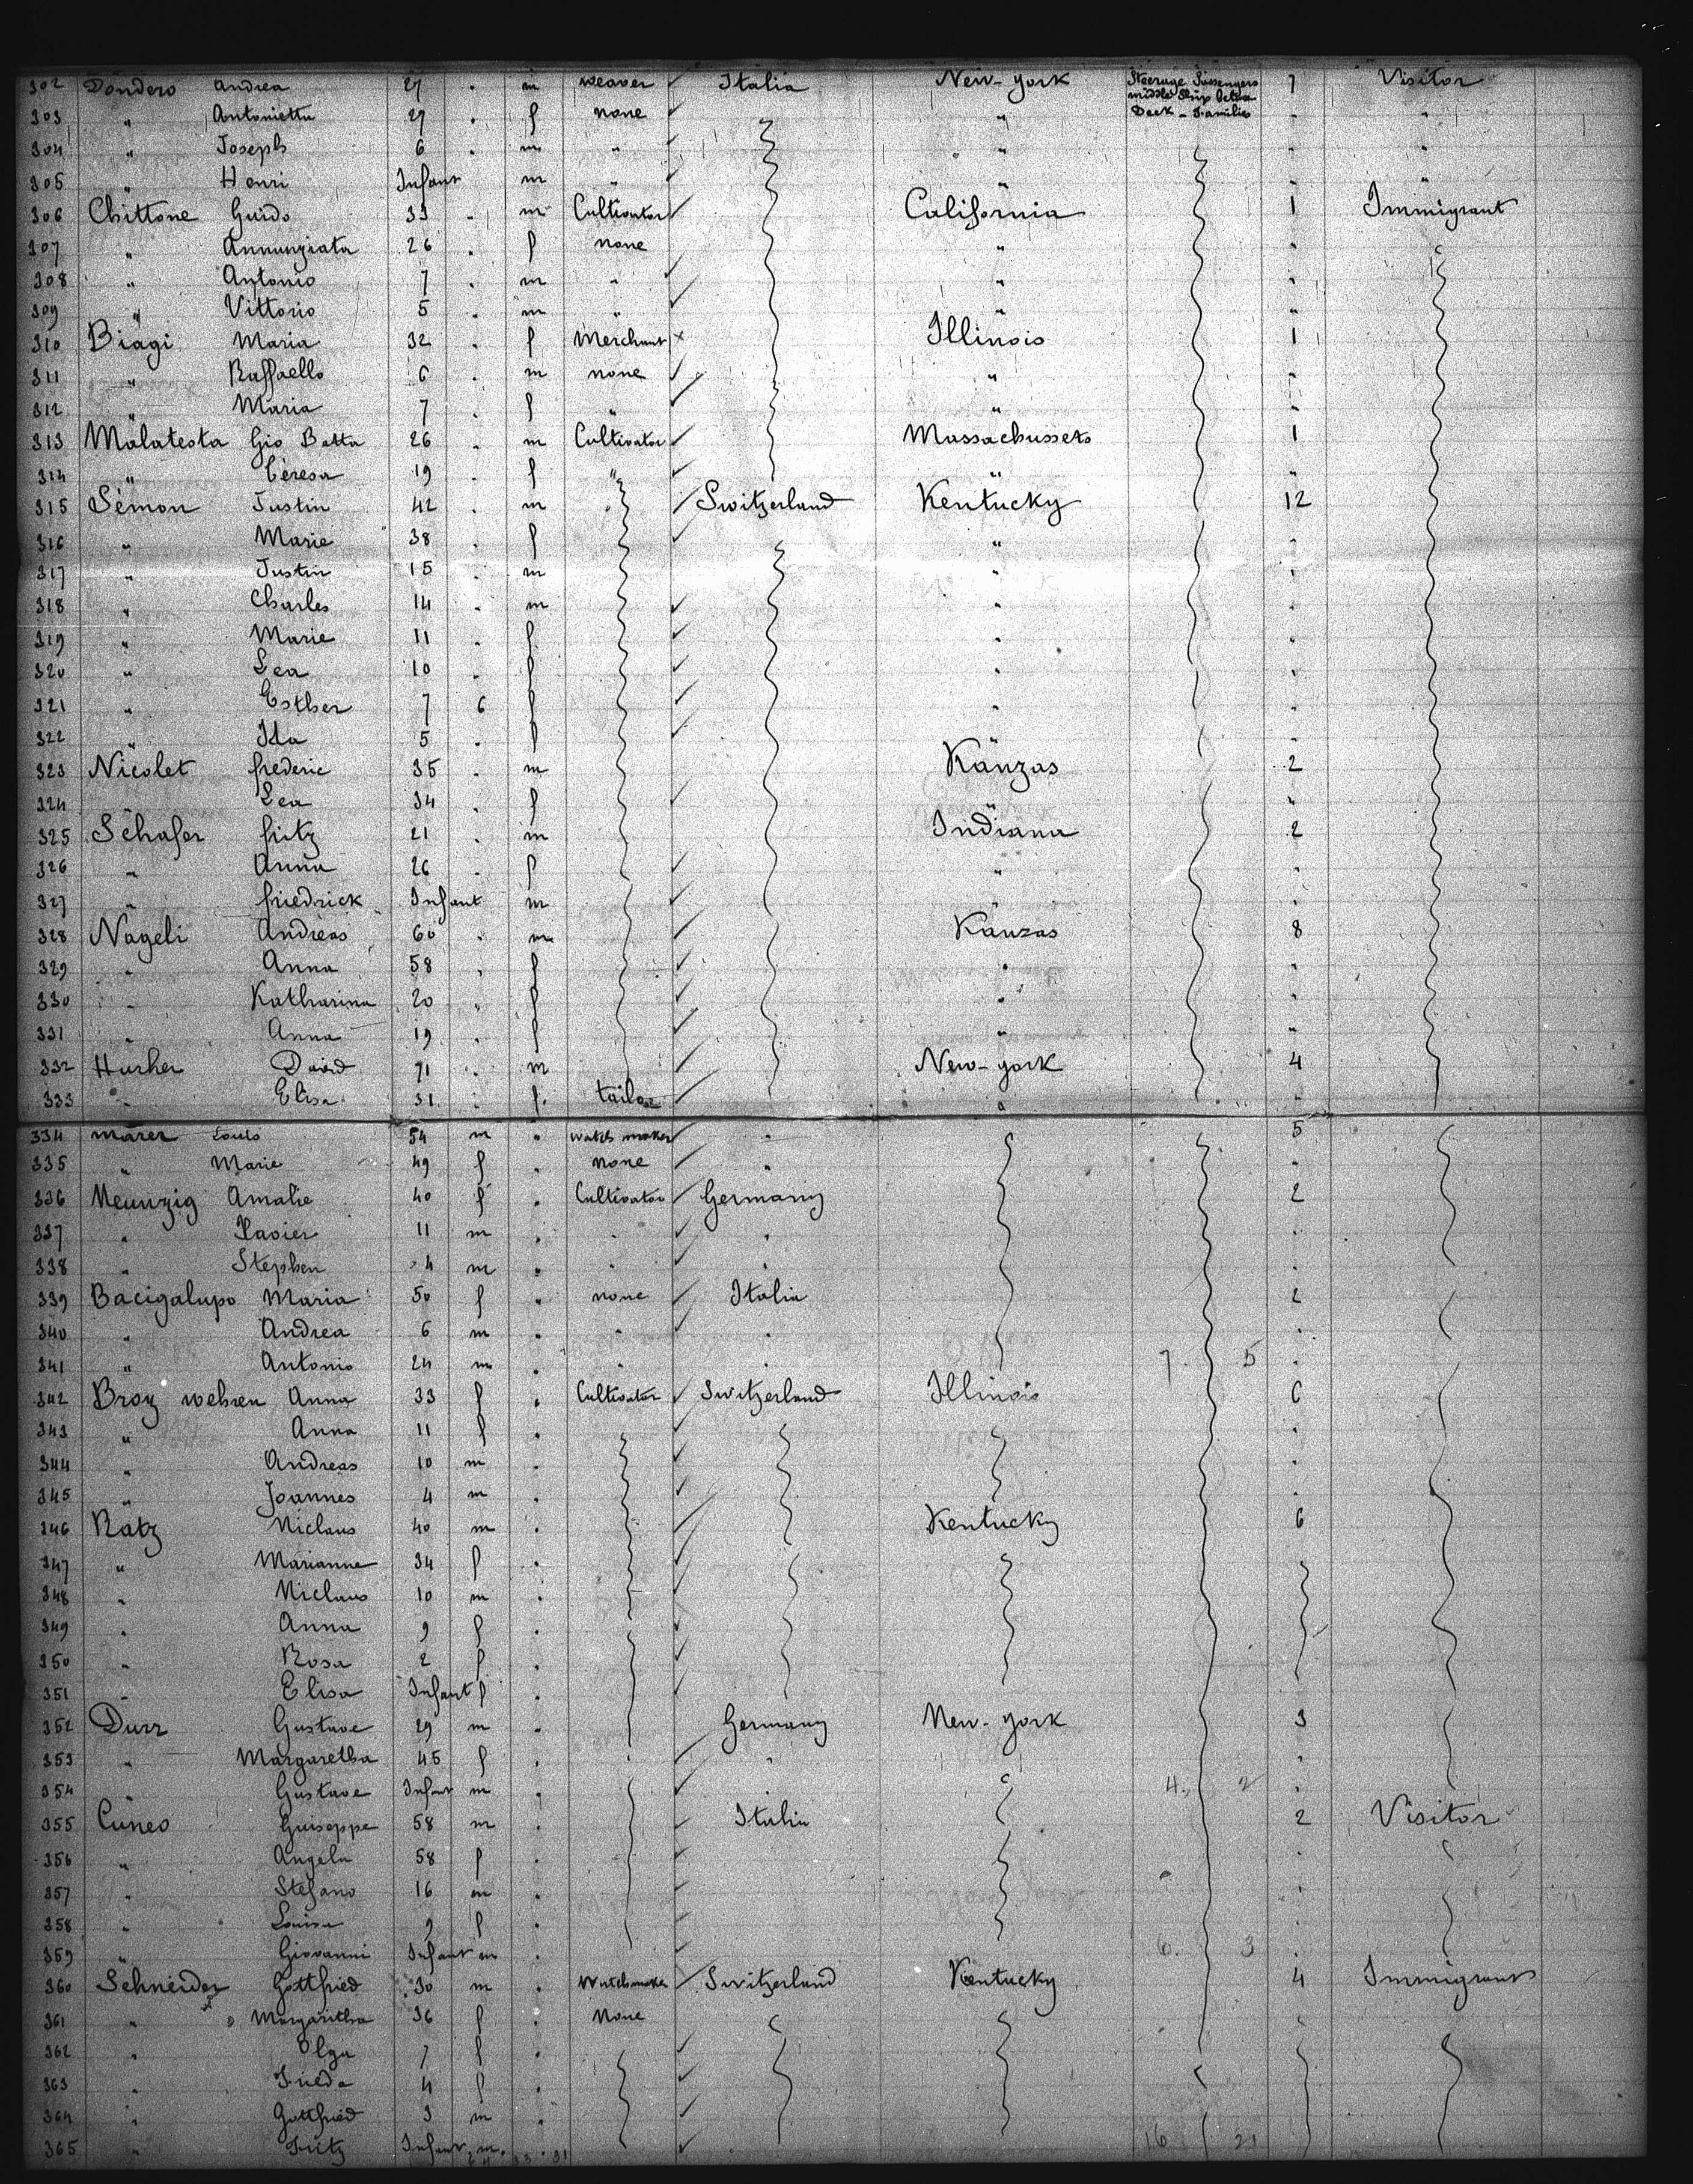 302 Dondero Andrea 27 " m weaver Italia New-york Steerage Passengers 1 Visitor
middle Ship betw.
303 " Antonietta 27 " f none " Deck - Families " "
304 " Joseph 6 " m " " " "
305 " Henri Infant m " " " "
306 Chittone Guido 33 " m Cultivator California 1 Immigrant
307 " Annunziata 26 " f none " "
308 " Antonio 7 " m " " "
309 " Vittorio 5 " m " " "
310 Biagi Maria 32 " f Merchant Illinois 1
311 " Raffaello 6 " m none " "
312 " Maria 7 " f " " "
313 Malatesta Gio Batta 26 " m Cultivator Massachussets 1
314 " Teresa 19 " f " " "
315 Sémon Justin 42 " m " Switzerland Kentucky 12
316 " Marie 38 " f " "
317 " Justin 15 " m " "
318 " Charles 14 " m " "
319 " Marie 11 " f " "
320 " Lea 10 " f " "
321 " Esther 7 6 f " "
322 " Ida 5 " f "
323 Nicolet frederic 35 " m Kanzas 2
324 " Lea 34 " f "
325 Schafer fritz 21 " m Indiana 2
326 " Anna 26 " f " "
327 " friedrick Infant m " "
328 Nageli Andreas 60 " m Kanzas 8
329 " Anna 58 " f " "
330 " Katharina 20 " f " "
331 " Anna 19 " f " "
332 Hurher David 71 " m New-york 4
333 " Elisa 31 " f. tailor " "
334 marer Louis 54 m " watch maker " 5
335 " Marie 49 f " none " "
336 Neunzig Amalie 40 f " Cultivator Germany 2
337 " Xavier 11 m " " " "
338 " Stephen 4 m " " " "
339 Bacigalupo Maria 50 f " none Italia 2
340 " Andrea 6 m " " " "
341 " Antonio 24 m " " " 7 5 "
342 Broy wehren Anna 33 f " Cultivator Switzerland Illinois 6
343 " Anna 11 f " "
344 " Andreas 10 m " "
345 " Joannes 4 m " "
346 Ratz Niclaus 40 m " Kentucky 6
347 " Marianne 34 f "
348 " Niclaus 10 m "
349 " Anna 9 f "
350 " Rosa 2 f "
351 " Elisa Infant f "
352 Durr Gustave 29 m " Germany New-york 3
353 " Margaretha 45 f " " " "
354 " Gustave Infant m " 4 2 "
355 Cuneo Guiseppe 58 m " Italia 2 Visitor
356 " Angela 58 f " "
357 " Stefano 16 m " "
358 " Louisa 9 f " "
359 " Giovanni Infant m " 6 3 "
360 Schneider Gottfried 30 m " Watchmaker Switzerland Kentucky 4 Immigrant
361 " Margaritha 36 f " None
362 " Olga 7 f "
363 " Frieda 4 f "
364 " Gottfried 3 m "
365 " Fritz Infant m. 16 21